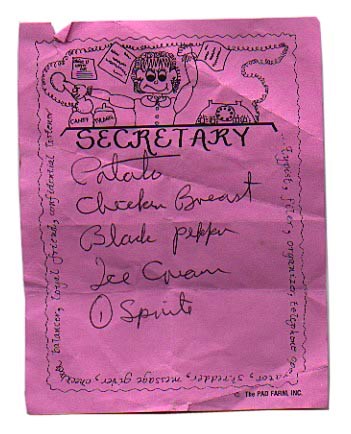 CANDY
SECRETARY
Potato
Chicken Breast
Black pepper
Ice Cream
① Sprite
Typist, filer, organizer, telephone operator, shredder, message giver, check
balancer, loyal friend, confidential listener
© The PAD FARM, INC.